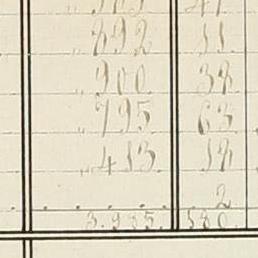 „ 892. 11.
„ 900. 38.
„ 795. 63
„ 413. 18
2
3.985. 580